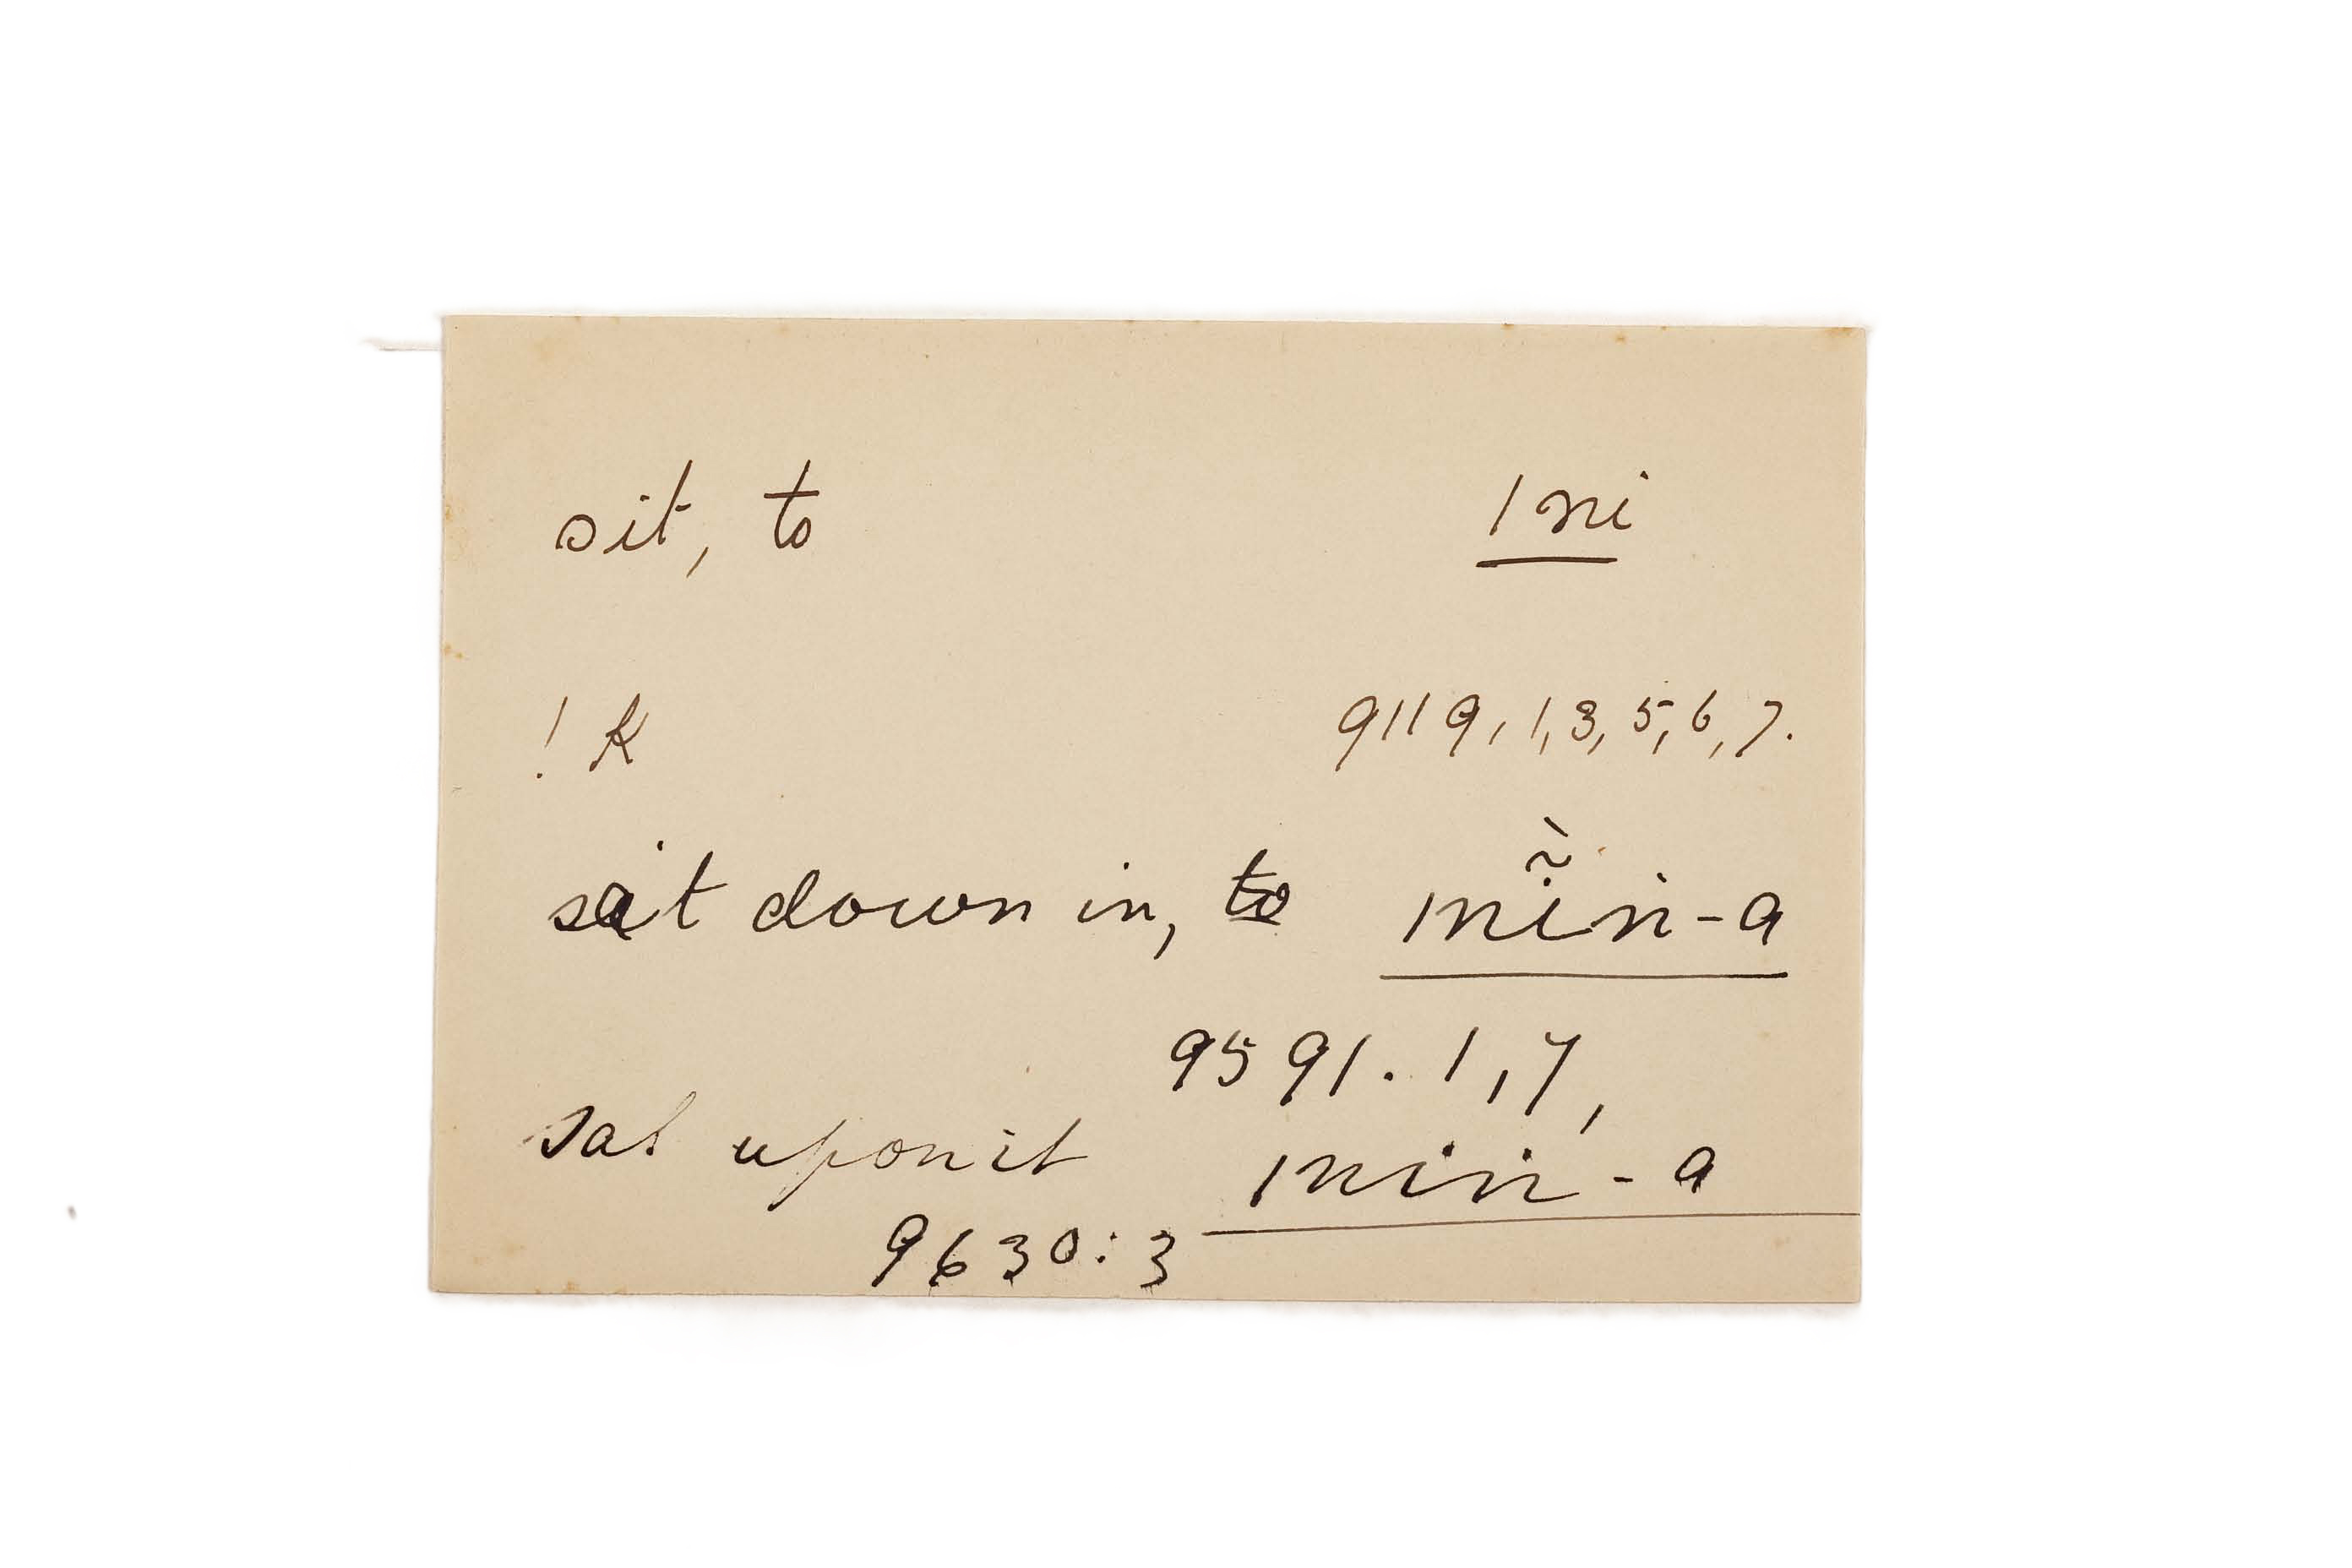 sit, to |ni
!k 9119, 1, 3, 5, 6, 7.
sat down in, |nĩ̀n-a
9591. 1, 7,
sat upon it |nin-a
9630:3